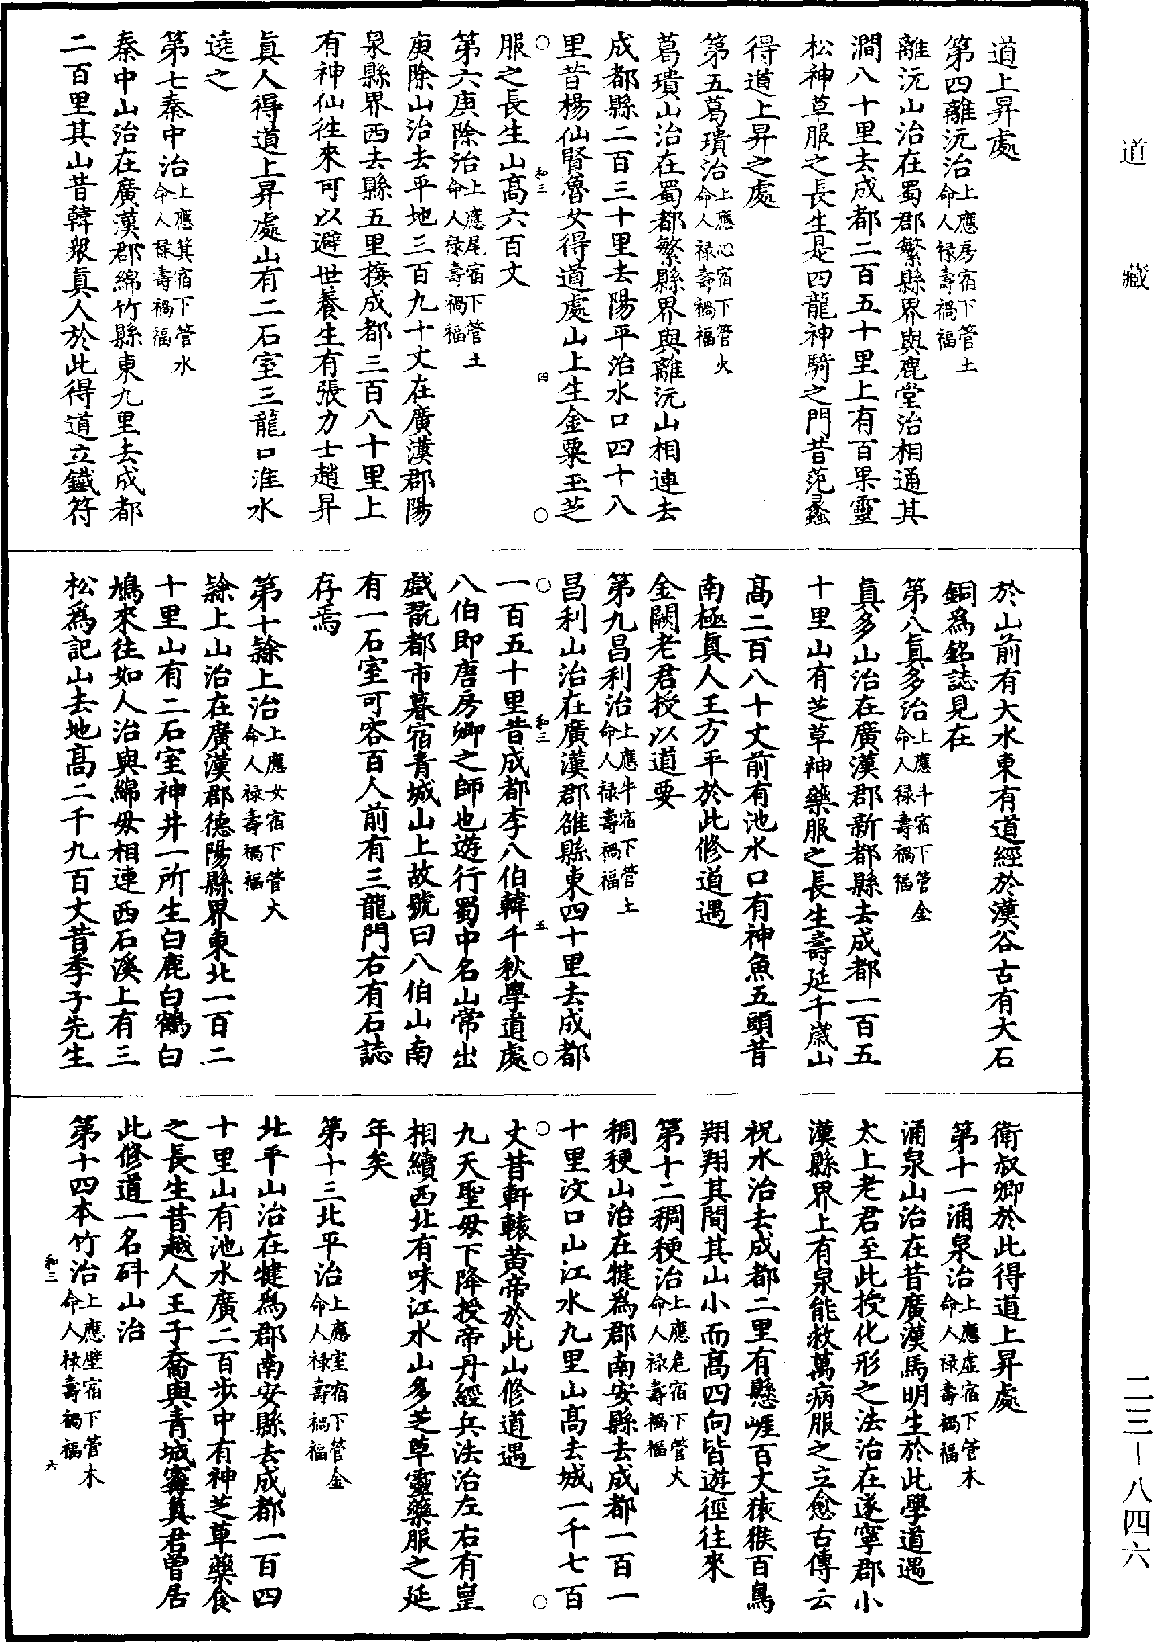 道上昇處
第四離沅治上應房宿下管土命人祿壽禍福
離沅山治在蜀郡繁縣界與鹿堂治相通其
澗八十里去成都二百五十里上有百果靈
松神草服之長生是四龍神騎之門昔范蠡
得道上昇之處
第五葛璝治上應心宿下管火命人祿壽禍福
葛璝山治在蜀都繁縣界與離沅山相連去
成都縣二百三十里去陽平治水口四十八
里昔楊仙賢魯女得道處山上生金粟玉芝
和三 四
服之長生山高六百丈
第六庚除治上應尾宿下管土命人祿壽禍福
庚除山治去平地三百九十丈在廣漢郡陽
泉縣界西去縣五里接成都三百八十里上
有神仙往來可以避世養生有張力士趙昇
眞人得道上昇處山有二石室三龍口淮水
遶之
第七秦中治上應箕宿下管水命人祿壽禍福
秦中山治在廣漢郡綿竹縣東九里去成都
二百里其山昔韓衆眞人於此得道立鐵符
於山前有大水東有道經於漢谷古有大石
銅為銘誌見在
第八眞多治上應斗宿下管金命人祿壽禍福
眞多山治在廣漢郡新都縣去成都一百五
十里山有芝草神藥服之長生壽延千歲山
高二百八十丈前有池水口有神魚五頭昔
南極眞人王方平於此修道遇
金闕老君授以道要
第九昌利治上應牛宿下管土命人祿壽禍福
昌利山治在廣漢郡雒縣東四十里去成都
和三 五
一百五十里昔成都李八伯韓千秋學道處
八伯即唐房卿之師也遊行蜀中名山常出
戲翫都市暮宿青城山上故號曰八伯山南
有一石室可容百人前有三龍門右有石誌
存焉
第十隷上治上應女宿下管火命人祿壽禍福
隷上山治在廣漢郡德陽縣界東北一百二
十里山有二石室神井一所生白鹿白鶴白
鳩來往如人治與綿母相連西石溪上有三
松為記山去地高二千九百丈昔季子先生
衛叔卿於此得道上昇處
第十一涌泉治上應虛宿下管木命人祿壽禍福
涌泉山治在昔廣漢馬明生於此學道遇
太上老君至此授化形之法治在遂寧郡小
漢縣界上有泉能救萬病服之立愈古傳云
祝水治去成都二里有懸崕百丈猿猴百鳥
翔翔其間其山小而高四向皆遊徑往來
第十二稠稉治上應危宿下管火命人祿壽禍福
稠稉山治在犍為郡南安縣去成都一百一
十里汶口山江水九里山高去城一千七百
丈昔軒轅黃帝於此山修道遇
九天聖母下降授帝丹經兵法治左右有崑
相續西北有味江水山多芝草靈藥服之延
年矣
第十三北平治上應室宿下管金命人祿壽禍福
北平山治在犍為郡南安縣去成都一百四
十里山有池水廣二百步中有神芝草藥食
之長生昔越人王子喬與青城甯眞君曾居
此修道一名碎山治
第十四本竹治上應壁宿下管木命人祿壽禍福
和三 六
道藏
二三-八四六